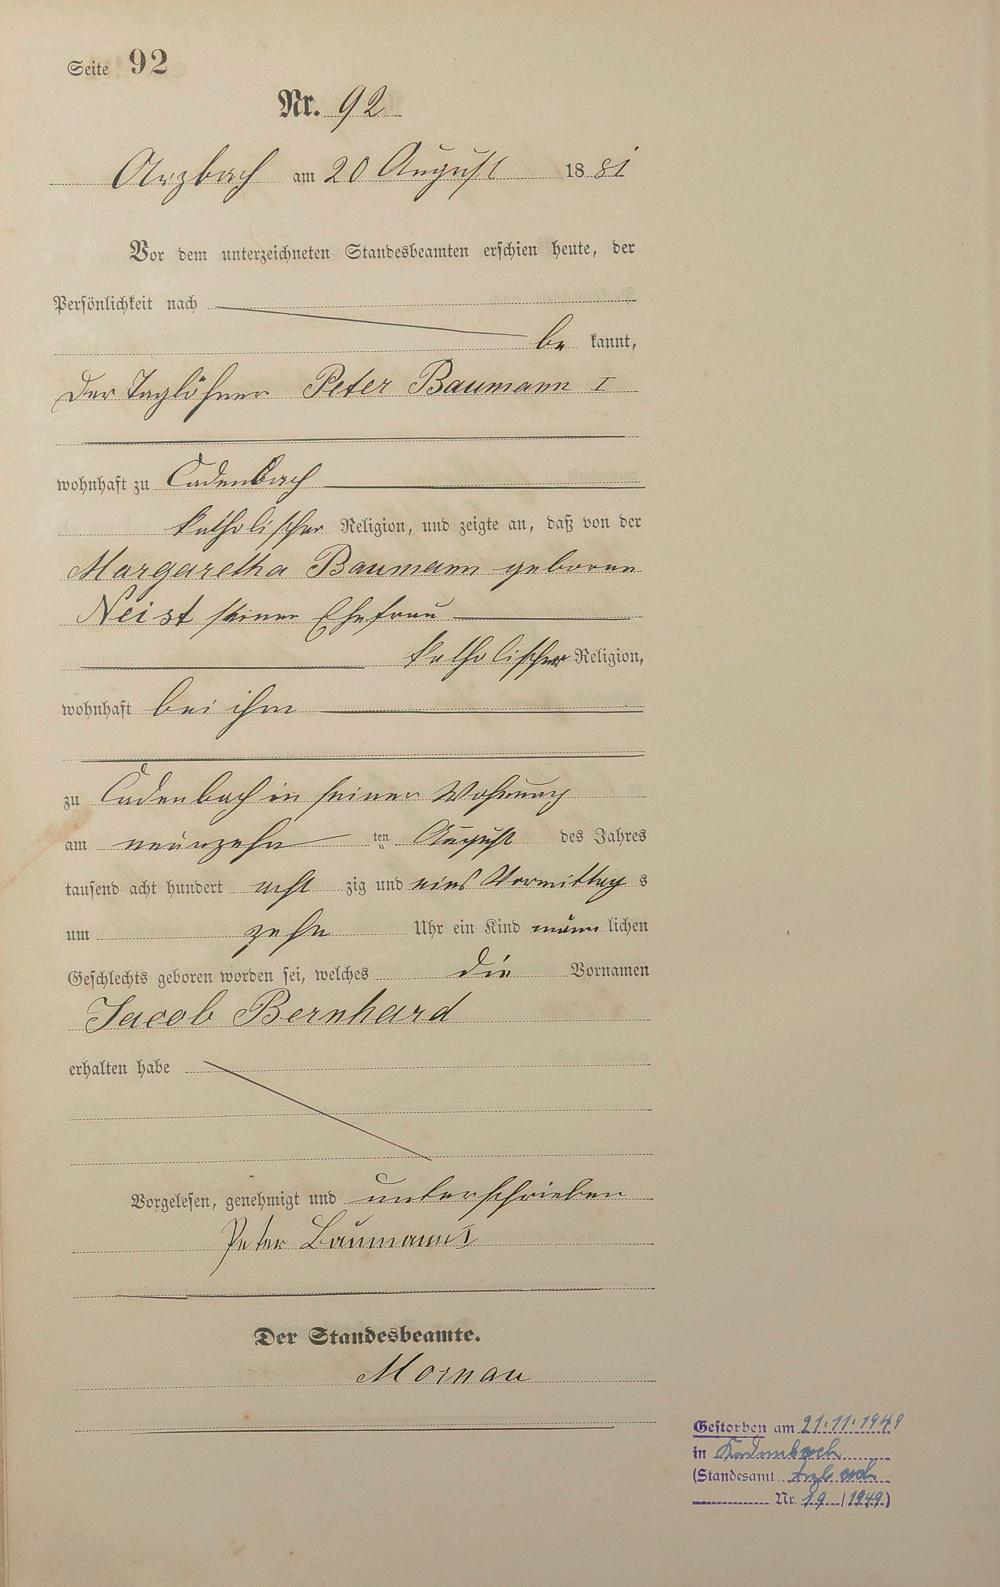 Seite 92
Nr. 92
Arzbach am 20 August 1881
Vor dem unterzeichneten Standesbeamten erschien heute, der
Persönlichkeit nach
be kannt,
der Taglöhner Peter Baumann I
wohnhaft zu Cadenbach
katholischer Religion, und zeigte an, daß von der
Margaretha Baumann geborne
Neist seiner Ehefrau
katholischer Religion,
wohnhaft bei ihm
zu Cadenbach in seiner Wohnung
am neunzehn ten August des Jahres
tausend acht hundert acht zig und eins Vormittag s
um zehn Uhr ein Kind männ lichen
Geschlechts geboren worden sei, welches die Vornamen
Jacob Bernhard
erhalten habe
Vorgelesen, genehmigt und unterschrieben
Peter Baumann I
Der Standesbeamte.
Mornau
Gestorben am 21.11.1949
in Kadenbach
(Standesamt Arzbach
Nr. 19 /1949)